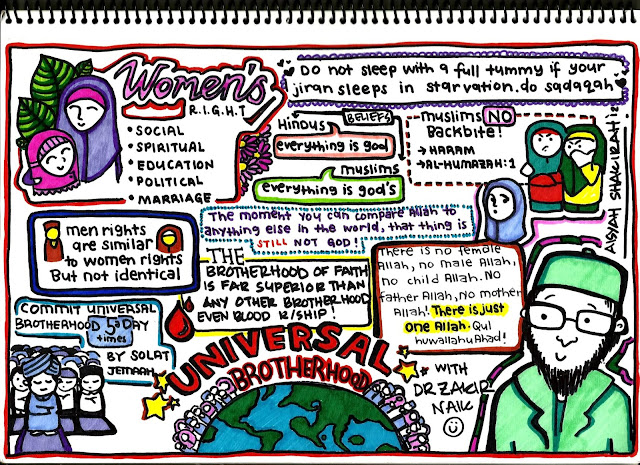 Women's
R.I.G.H.T
• SOCIAL
• SPIRITUAL
• EDUCATION
• POLITICAL
• MARRIAGE
Do not sleep with a full tummy if your
jiran sleeps in starvation. do sadaqah
BELIEFS
HINDUS
everything is god
muslims
everything is god's
muslims NO
Backbite!
→ HARAM
→ AL-HUMAZAH:1
AISYAH SHAKIRAH '12
men rights
are similar
to women rights
But not identical
The moment you can compare Allah to
anything else in the world, that thing is
STILL NOT GOD!
THE
BROTHERHOOD OF FAITH
IS FAR SUPERIOR THAN
ANY OTHER BROTHERHOOD
EVEN BLOOD R/SHIP!
There is no female
Allah, no male Allah,
no child Allah. NO
father Allah, No mother
Allah. There is just
one Allah. Qul
huwallahuAhad!
COMMIT UNIVERSAL
BROTHERHOOD 5 a DAY
times
BY SOLAT
JEMAAH
UNIVERSAL
BROTHERHOOD
WITH
DR ZAKIR
NAIK